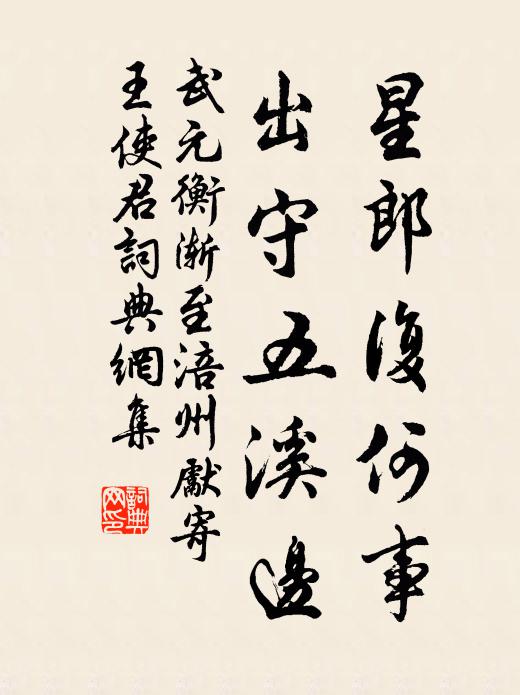 星郎復何事
出守五溪邊
武元衡漸至涪州獻寄
王使君詞典網集
詞典
网印